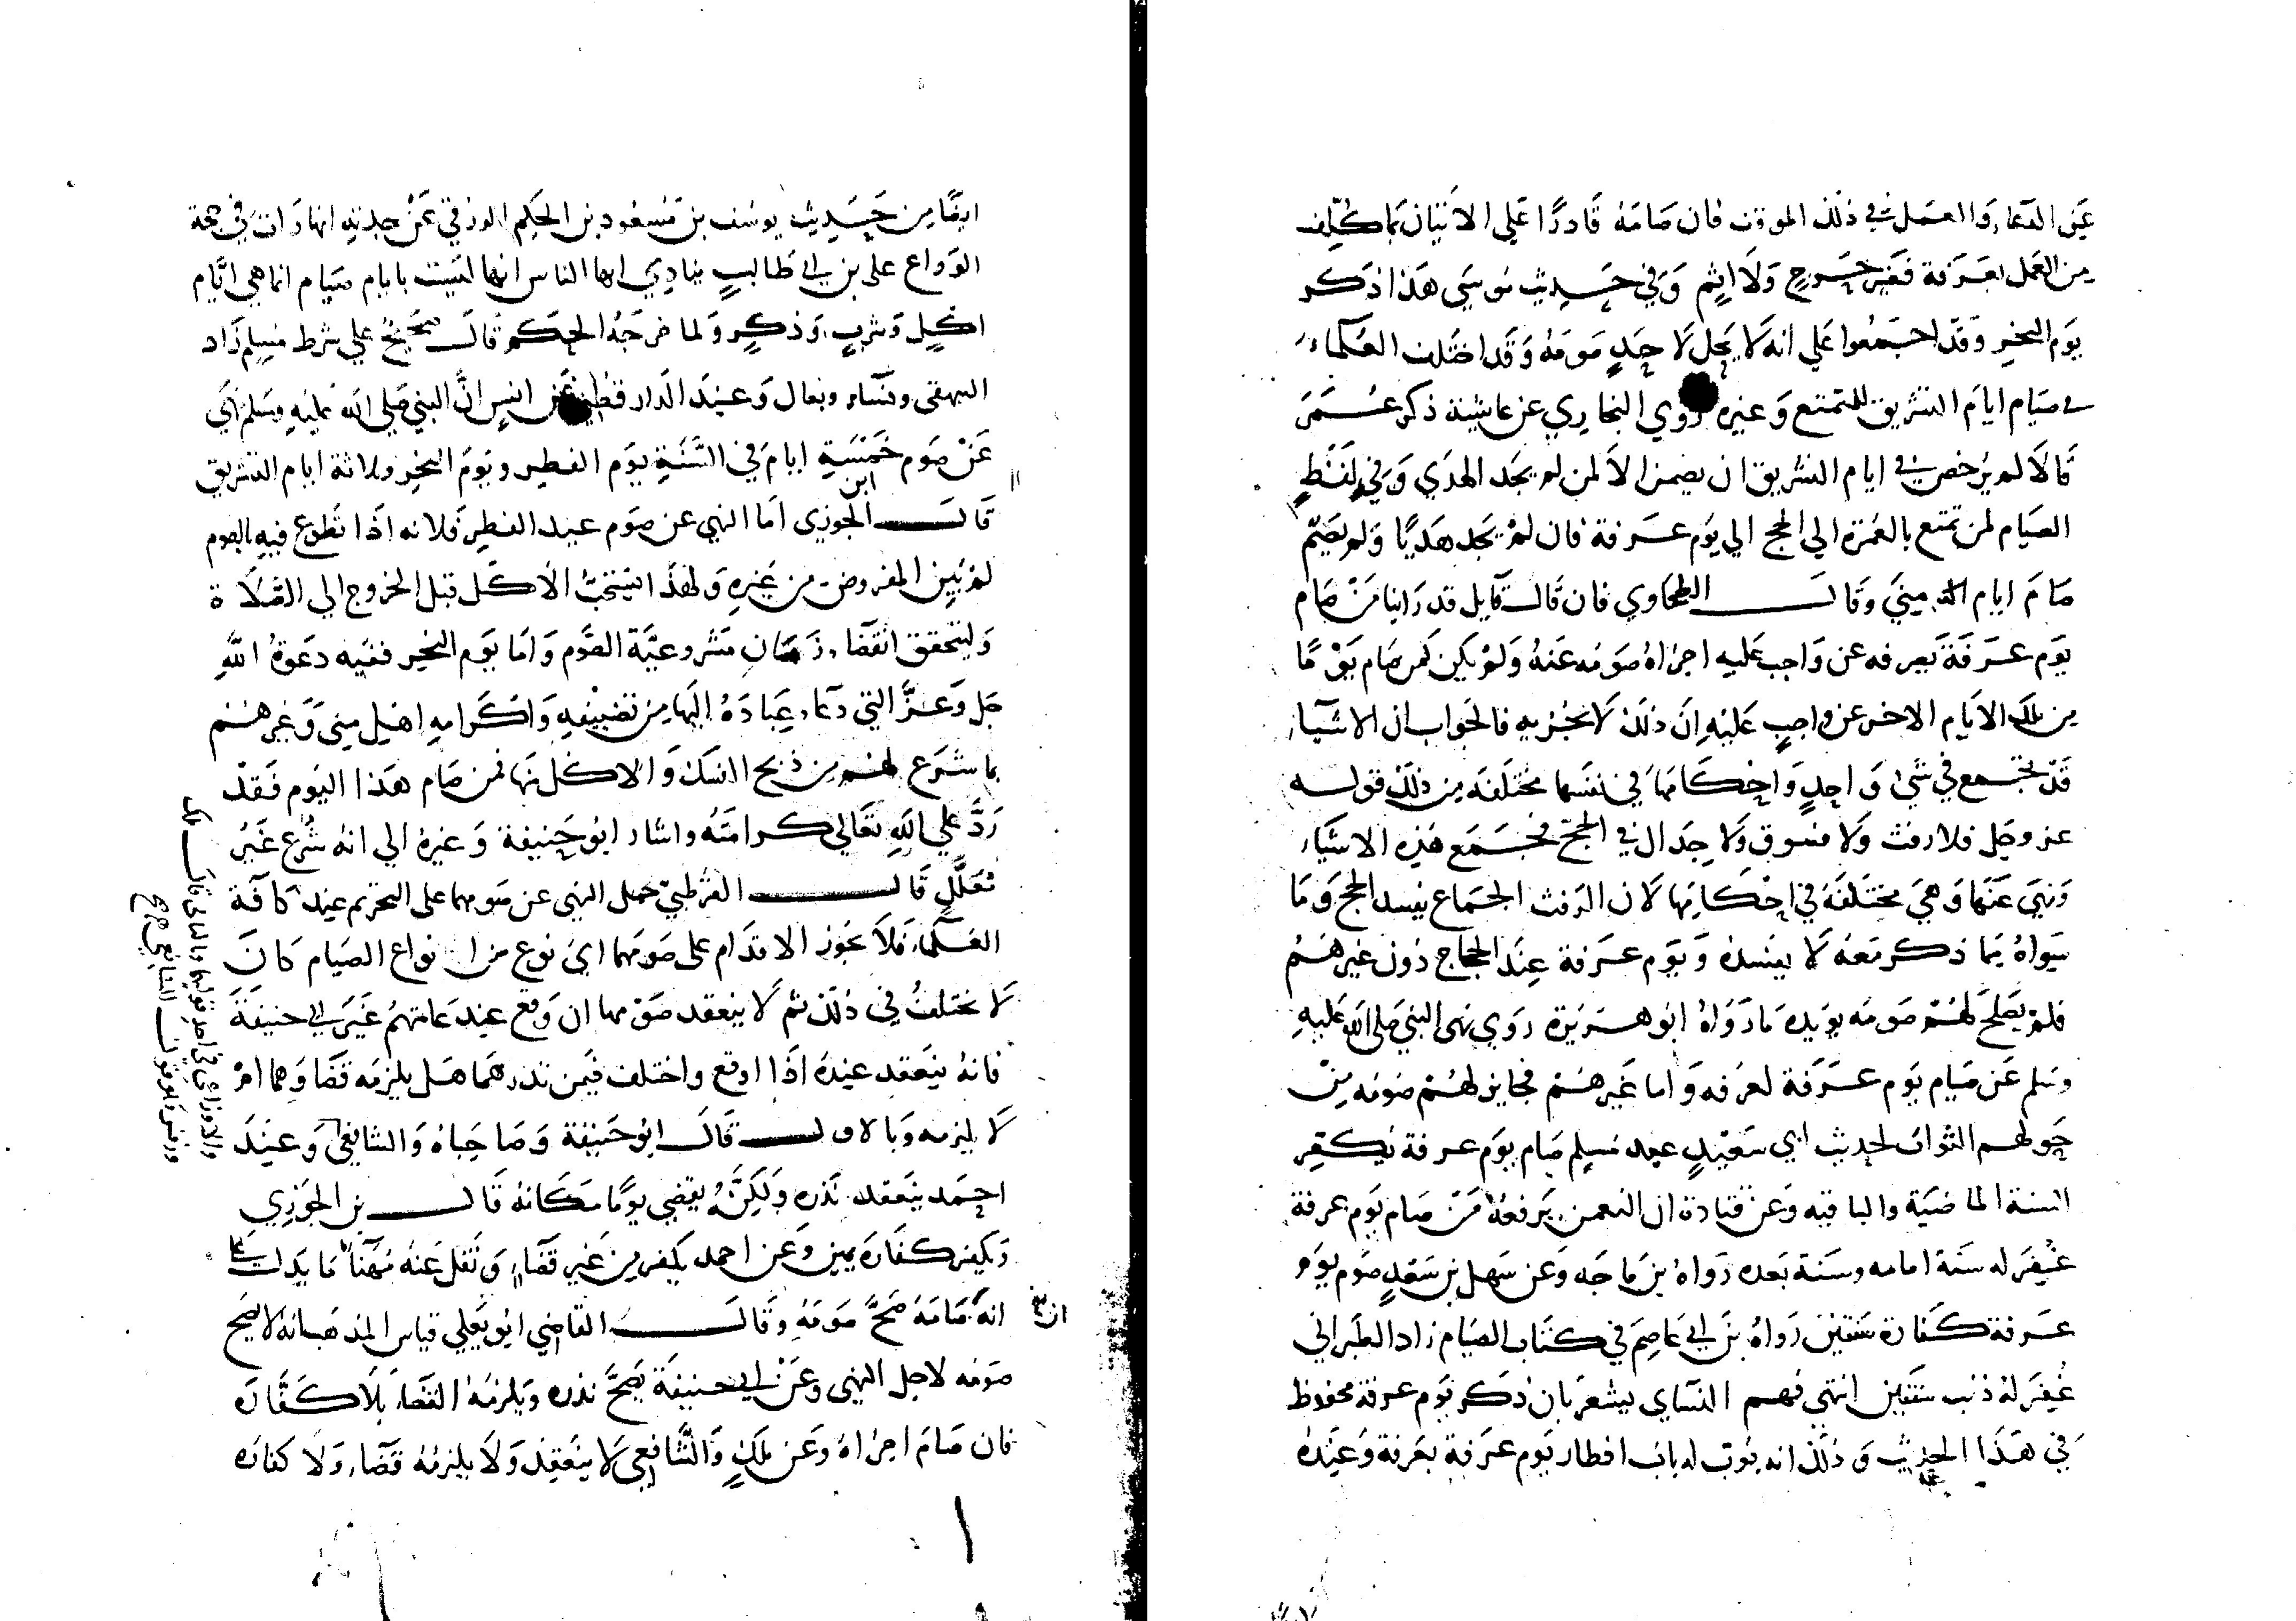 عن الدعاء والعمل في ذلك الموقف فان صامه قادرا علي الاتيان بما كلف
من العمل بعرفة فغير حرج ولا اثم وفي حديث موسي هذا ذكر
يوم النحر وقد اجتمعوا علي انه لا يحل لاحد صومه وقد اختلف العلماء
في صيام ايام التشريق للمتمتع وغيره روي البخاري عن عائشة ذكر عمر
قالا لم يرخص في ايام التشريق ان يصمن الا لمن لم يجد الهدي وفي لفظ
الصيام لمن تمتع بالعمرة الي الحج الي يوم عرفة فان لم يجد هديا ولم يصم
صام ايام مني وقال الطحاوي فان قال قايل قد راينا من صام
يوم عرفة بعرفه عن واجب عليه اجزاه صومه عنه ولم يكن كمن صام يوما
من تلك الايام الاخر عن واجب عليه ان ذلك لا يجزيه فالجواب ان الاشياء
قد تجتمع في شيء واحد واحكامها في نفسها مختلفة من ذلك قوله
عز وجل فلا رفث ولا فسوق ولا جدال في الحج فجمع هذه الاشياء
ونهي عنها وهي مختلفة في احكامها لان الرفث الجماع يفسد الحج وما
سواه مما ذكر معه لا يفسده ويوم عرفة عند الحجاج دون غيرهم
فلم يصلح لهم صومه يؤيده ما رواه ابو هريرة روي نهى النبي صلى الله عليه
وسلم عن صيام يوم عرفة لعرفه واما غيرهم فجايز لهم صومه من
حولهم الثواب لحديث ابي سعيد عند مسلم صام يوم عرفة يكفر
السنة الماضية والباقيه وعن قتادة ان النعمن يرفعه من صام يوم عرفة
غفر له سنة امامه وسنة بعده رواه بن ماجه وعن سهل بن سعد صوم يوم
عرفة كفارة سنتين رواه بن ابي عاصم في كتاب الصيام زاد الطبراني
غفر له ذنب سنتين انتهي فهم النساي يشعر بان ذكر يوم عرفة محفوظ
في هذا الحديث وذلك انه بوب له باب افطار يوم عرفة بعرفة وعنده
ايضا من حديث يوسف بن مسعود بن الحكم الزرقي عن جدته انها رات في حجة
الوداع علي بن ابي طالب ينادي ايها الناس انها ليست بايام صيام انما هي ايام
اكل وشرب وذكر ولما خرجه الحكم قال صحيح علي شرط مسلم زاد
البيهقى ونساء وبعال وعند الدارقطني عن انس ان النبي صلي الله عليه وسلم نهي
عن صوم خمسة ايام في السنة يوم الفطر ويوم النحر وثلاثة ايام التشريق
قال ابن الجوزي اما النهي عن صوم عيد الفطر فلانه اذا تطوع فيه بالصوم
لم يبين المفروض من غيره ولهذا استحب الاكل قبل الخروج الي الصلاة
وليتحقق انقضاء زمان مشروعية الصوم واما يوم النحر ففيه دعوة الله
جل وعز التي دعا عباده اليها من تضييفه واكرامه اهل مني وغيرهم
بما شرع لهم من ذبح النسك والاكل منها فمن صام هذا اليوم فقد
رد علي الله تعالي كرامته واشار ابو حنيفة وغيره الي انه شرع غير
معلل قال القرطبي حمل النهي عن صومهما على التحريم عند كافة
العلماء فلا يجوز الاقدام على صومهما اي نوع من انواع الصيام كان
لا يختلف في ذلك ثم لا ينعقد صومهما ان وقع عند عامتهم غير ابي حنيفة
فانه ينعقد عنده اذا اوقع واختلف فيمن نذرهما هل يلزمه قضاوهما ام
لا يلزمه وبالاول قال ابو حنيفة وصاحباه والشافعي وعند
احمد ينعقد نذره ولكنه يقضي يوما مكانه قال بن الجوزي
ويكفر كفارة يمين وعن احمد يكفر من غير قضاء ونقل عنه مهنا ما يدل على
انه ان صامه صح صومه وقال القاضي ابو يعلي قياس المذهب انه لا يصح
صومه لاجل النهي وعن ابي حنيفة يصح نذره ويلزمه القضاء بلا كفارة
فان صام اجزاه وعن ملك والشافعي لا ينعقد ولا يلزمه قضاء ولا كفاره
والاوزاعي في احد قوليه وبالثاني قال ملك
وزفر وهو قول الشافعي صح